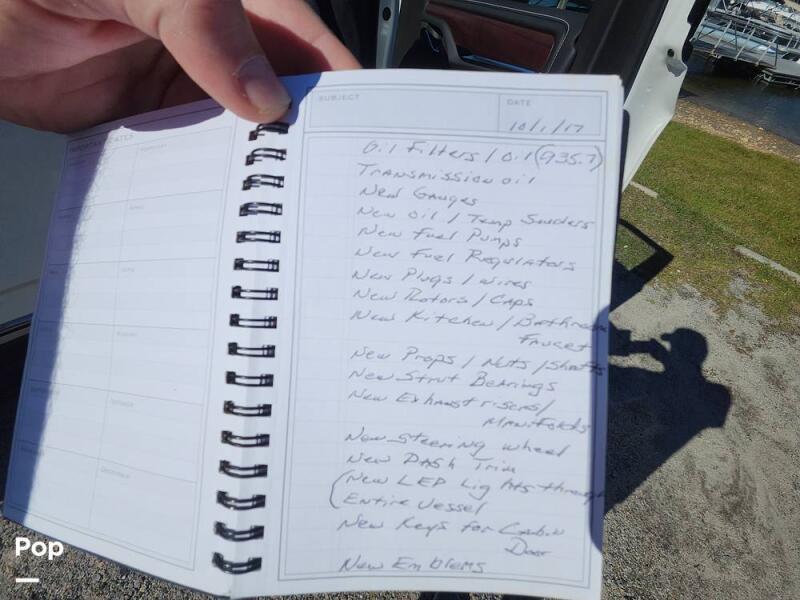 IMPORTANT DATES
SUBJECT
DATE
10/1/17
Oil Filters / Oil (935.7)
Transmission oil
New Gauges
New Oil / Temp Senders
New Fuel Pumps
New Fuel Regulators
New Plugs / Wires
New Rotors / Caps
New Kitchen / Bathroom
Faucet
New Props / Nuts / Shafts
New Strut Bearings
New Exhaust risers /
Manifolds
New Steering wheel
New Dash Trim
(New LED Lights through
Entire Vessel
New Keys for Cabin
Door
New Emblems
Pop